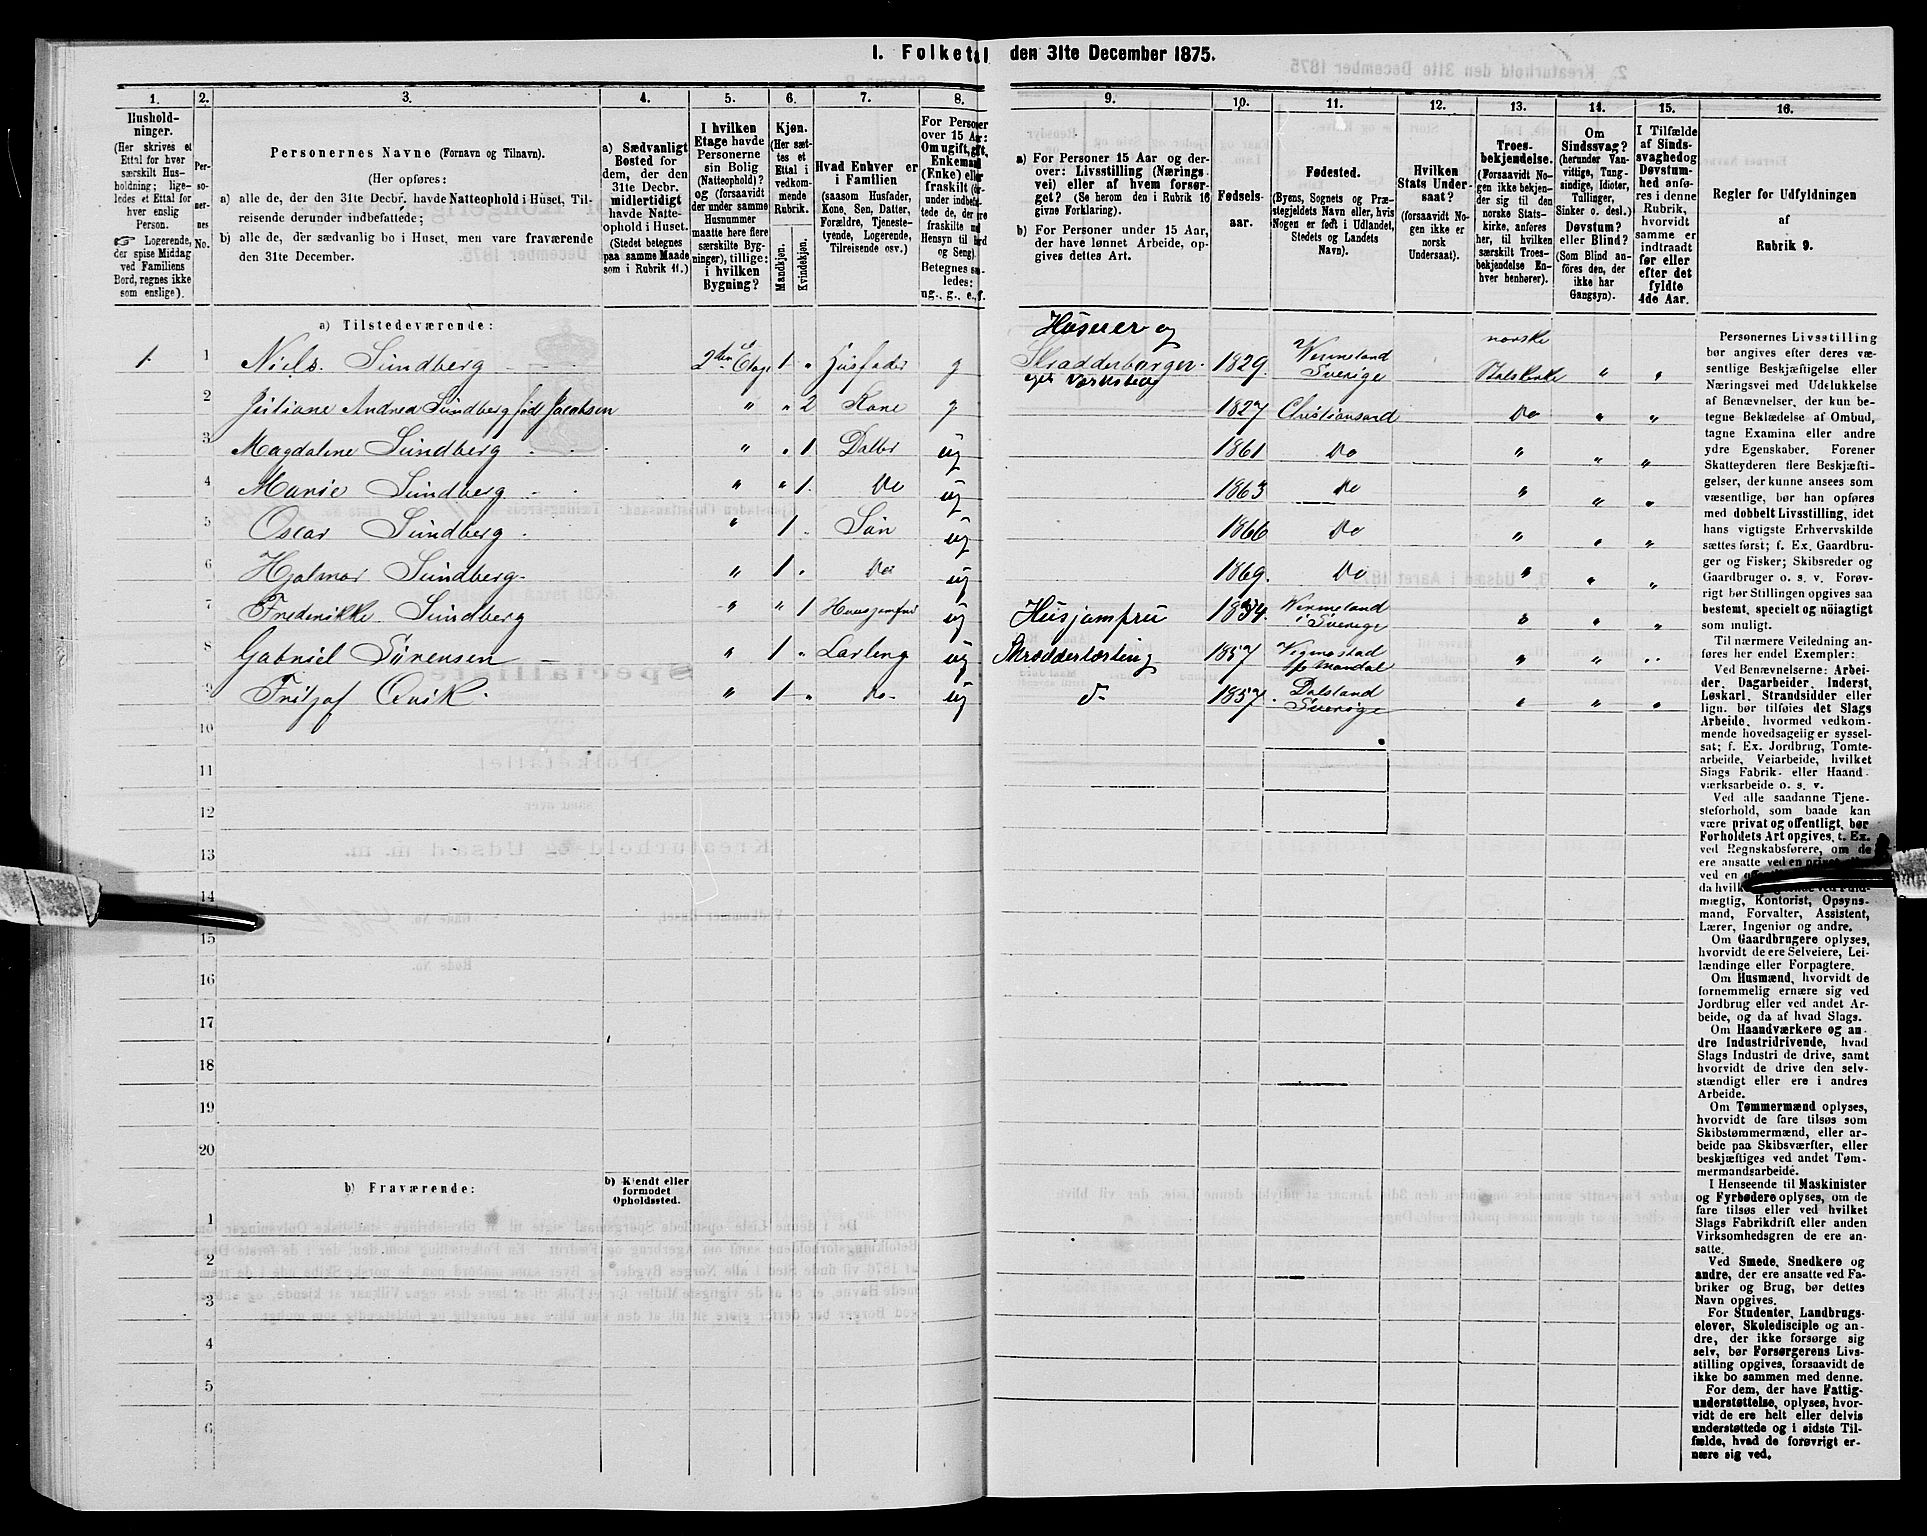 1. Folketal den 31te December 1875.
1. 2. 3. 4. 5. 6. 7. 8. 9. 10. 11. 12. 13. 14. 15. 16.
Hushold-
ninger.
(Her skrives et
Ettal for hver
særskilt Hus-
holdning; lige-
ledes et Ettal for
hver enslig
Person.
☞ Logerende,
der spise Middag
ved Familiens
Bord, regnes ikke
som enslige).
Per-
so-
ner-
nes
No.
Personernes Navne (Fornavn og Tilnavn).
(Her opføres:
a) alle de, der den 31te Decbr. havde Natteophold i Huset, Til-
reisende derunder indbefattede;
b) alle de, der sædvanlig bo i Huset, men vare fraværende
den 31te December.
a) Sædvanligt
Bosted for
dem, der den
31te Decbr.
midlertidigt
havde Natte-
ophold i Huset.
(Stedet betegnes
paa samme Maade
som i Rubrik 11.)
I hvilken
Etage havde
Personerne
sin Bolig
(Natteophold)?
og (forsaavidt
der under samme
Husnummer
maatte høre flere
særskilte Byg-
ninger), tillige:
i hvilken
Bygning?
Kjøn.
(Her sæt-
tes et
Ettal i
vedkom-
mende
Rubrik.
Mandkjøn.
Kvindekjøn.
Hvad Enhver er
i Familien
(saasom Husfader,
Kone, Søn, Datter,
Forældre, Tjeneste-
tyende, Logerende,
Tilreisende osv.)
For Personer
over 15 Aar:
Om ugift, gift,
Enkemand
(Enke) eller
fraskilt
Betegnes saa-
ledes:
ng., g., e., f.
a) For Personer 15 Aar og der-
over: Livsstilling (Nærings-
vei) eller af hvem forsør-
get? (Se herom den i Rubrik 16
givne Forklaring).
b) For Personer under 15 Aar,
der have lønnet Arbeide, op-
gives dettes Art.
Fødsels-
aar.
Fødested.
(Byens, Sognets og Præ-
stegjeldets Navn eller, hvis
Nogen er født i Udlandet,
Stedets og Landets
Navn).
Hvilken
Stats Under-
saat?
(forsaavidt No-
gen ikke er
norsk
Undersaat).
Troes-
bekjendelse.
(Forsaavidt No-
gen ikke bekjen-
der sig til den
norske Stats-
kirke, anføres
her, til hvilken
særskilt Troes-
bekjendelse En-
hver henhører).
Om
Sindssvag?
(herunder Van-
vittige, Tung-
sindige, Idioter,
Tullinger,
Sinker o. desl.)
Døvstum?
eller Blind?
(Som Blind an-
føres den, der
ikke har
Gangsyn).
I Tilfælde
af Sinds-
svaghed og
Døvstum-
hed anfø-
res i denne
Rubrik,
hvorvidt
samme er
indtraadt
før eller
efter det
fyldte
4de Aar.
Regler for Udfyldningen
af
Rubrik 9.
a) Tilstedeværende:
Huseier og
norske
1 1 Niels Sundberg 2den Etage 1 " Husfader g Skrædderborger 1829. Vermeland Sverige Statskirke " "
eget Værksted
2 Juliane Andrea Sundberg født Jacobsen " " 2 Kone g 1827 Christianssand Do " "
3 Magdalene Sundberg " " 1 Datter ug 1861 Do " " "
4 Marie Sundberg " " 1 Do ug 1863 Do " " "
5 Oscar Sundberg " 1 " Søn ug 1866 Do " " "
6 Hjalmar Sundberg " 1 " Do ug 1869. Do " " "
7 Frederikke Sundberg " " 1 Huusjomfru ug Husjomfru 1854. Vermeland i Sverige " " "
8 Gabriel Sørensen " 1 " Lærling ug Skrædderlærling 1857 Vigmostad p Mandal " " "
9 Fritjof Qvik " 1 " do ug d 1857. Dalsland Sverige " " "
10
11
12
13
14
15
16
17
18
19
20
b) Fraværende:
b) Kjendt eller
formodet
Opholdssted.
1
2
3
4
5
6
Personernes Livsstilling
bør angives efter deres væ-
sentlige Beskjæftigelse eller
Næringsvei med Udelukkelse
af Benævnelser, der kun be-
tegne Beklædelse af Ombud,
tagne Examina eller andre
ydre Egenskaber. Forener
Skatteyderen flere Beskjæfti-
gelser, der kunne ansees som
væsentlige, bør han opføres
med dobbelt Livsstilling, idet
hans vigtigste Erhvervskilde
sættes først; f. Ex. Gaardbru-
ger og Fisker; Skibsreder og
Gaardbruger o. s. v. Forøv-
rigt bør Stillingen opgives saa
bestemt, specielt og nöiagtigt
som muligt.
Til nærmere Veiledning an-
føres her endel Exempler:
Ved Benævnelserne: Arbei-
der, Dagarbeider, Inderst,
Løskarl, Strandsidder eller
lign. bør tilføies det Slags
Arbeide, hvormed vedkom-
mende hovedsagelig er syssel-
sat; f. Ex. Jordbrug, Tomte-
arbeide, Veiarbeide, hvilket
Slags Fabrik- eller Haand-
værksarbeide o. s. v.
Ved alle saadanne Tjene-
steforhold, som baade kan
være privat og offentligt, bør
Forholdets Art opgives, t. Ex.
ved Regnskabsførere, om de
ere ansatte ved en privat
ved en
da hvilken
mægtig, Kontorist, Opsyns-
mand, Forvalter, Assistent,
Lærer, Ingeniør og andre.
Om Gaardbrugere oplyses,
hvorvidt de ere Selveiere, Lei-
lændinge eller Forpagtere.
Om Husmænd, hvorvidt de
fornemmelig ernære sig ved
Jordbrug eller ved andet Ar-
beide, og da af hvad Slags.
Om Haandværkere og an-
dre Industridrivende, hvad
Slags Industri de drive, samt
hvorvidt de drive den selv-
stændigt eller ere i andres
Arbeide.
Om Tømmermænd oplyses,
hvorvidt de fare tilsøs som
Skibstømmermænd, eller ar-
beide paa Skibsværfter, eller
beskjæftiges ved andet Tøm-
mermandsarbeide.
I Henseende til Maskinister
og Fyrbødere oplyses, om de
fare tilsøs eller ved hvilket
Slags Fabrikdrift eller anden
Virksomhedsgren de ere an-
satte.
Ved Smede, Snedkere og
andre, der ere ansatte ved Fa-
briker og Brug, bør dettes
Navn opgives.
For Studenter, Landbrugs-
elever, Skoledisciple og an-
dre, der ikke forsørge sig
selv, bør Forsørgerens Livs-
stilling opgives, forsaavidt de
ikke bo sammen med denne.
For dem, der have Fattig-
understøttelse, oplyses, hvor-
vidt de ere helt eller delvis
understøttede og i sidste Til-
fælde, hvad de forøvrigt er-
nære sig ved.